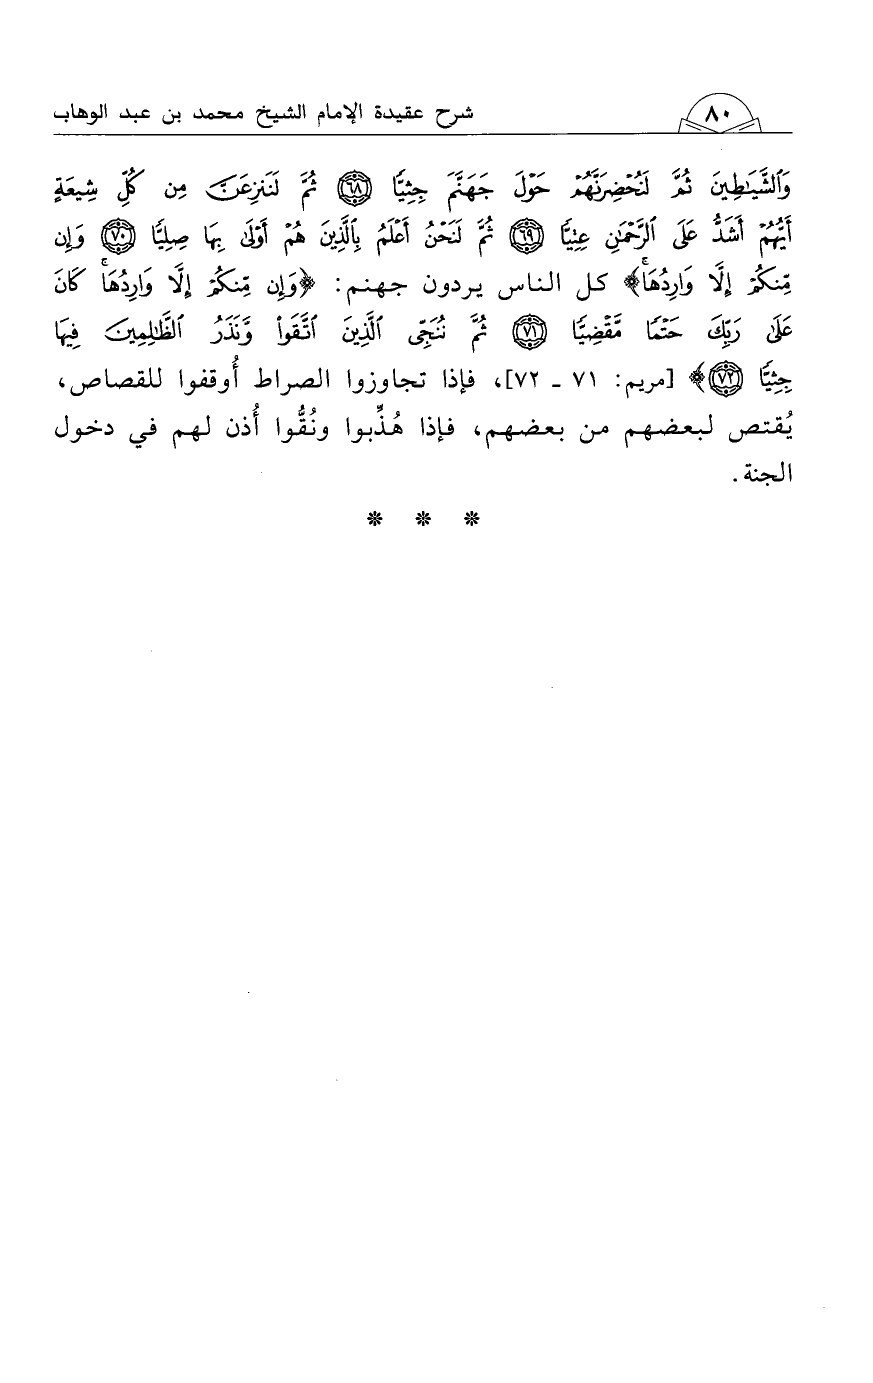 ٨٠ شرح عقيدة الإمام الشيخ محمد بن عبد الوهاب
وَٱلشَّيَـٰطِينَ ثُمَّ لَنُحْضِرَنَّهُمْ حَوْلَ جَهَنَّمَ جِثِيًّا ﴿٦٨﴾ ثُمَّ لَنَنزِعَنَّ مِن كُلِّ شِيعَةٍ
أَيُّهُمْ أَشَدُّ عَلَى ٱلرَّحْمَـٰنِ عِتِيًّا ﴿٦٩﴾ ثُمَّ لَنَحْنُ أَعْلَمُ بِٱلَّذِينَ هُمْ أَوْلَىٰ بِهَا صِلِيًّا ﴿٧٠﴾ وَإِن
مِّنكُمْ إِلَّا وَارِدُهَا ۚ﴾ كل الناس يردون جهنم: ﴿وَإِن مِّنكُمْ إِلَّا وَارِدُهَا ۚ كَانَ
عَلَىٰ رَبِّكَ حَتْمًا مَّقْضِيًّا ﴿٧١﴾ ثُمَّ نُنَجِّى ٱلَّذِينَ ٱتَّقَوا۟ وَّنَذَرُ ٱلظَّـٰلِمِينَ فِيهَا
جِثِيًّا ﴿٧٢﴾﴾ [مريم: ٧١ ـ ٧٢]، فإذا تجاوزوا الصراط أُوقفوا للقصاص،
يُقتص لبعضهم من بعضهم، فإذا هُذِّبوا ونُقُّوا أُذن لهم في دخول
الجنة.
* * *